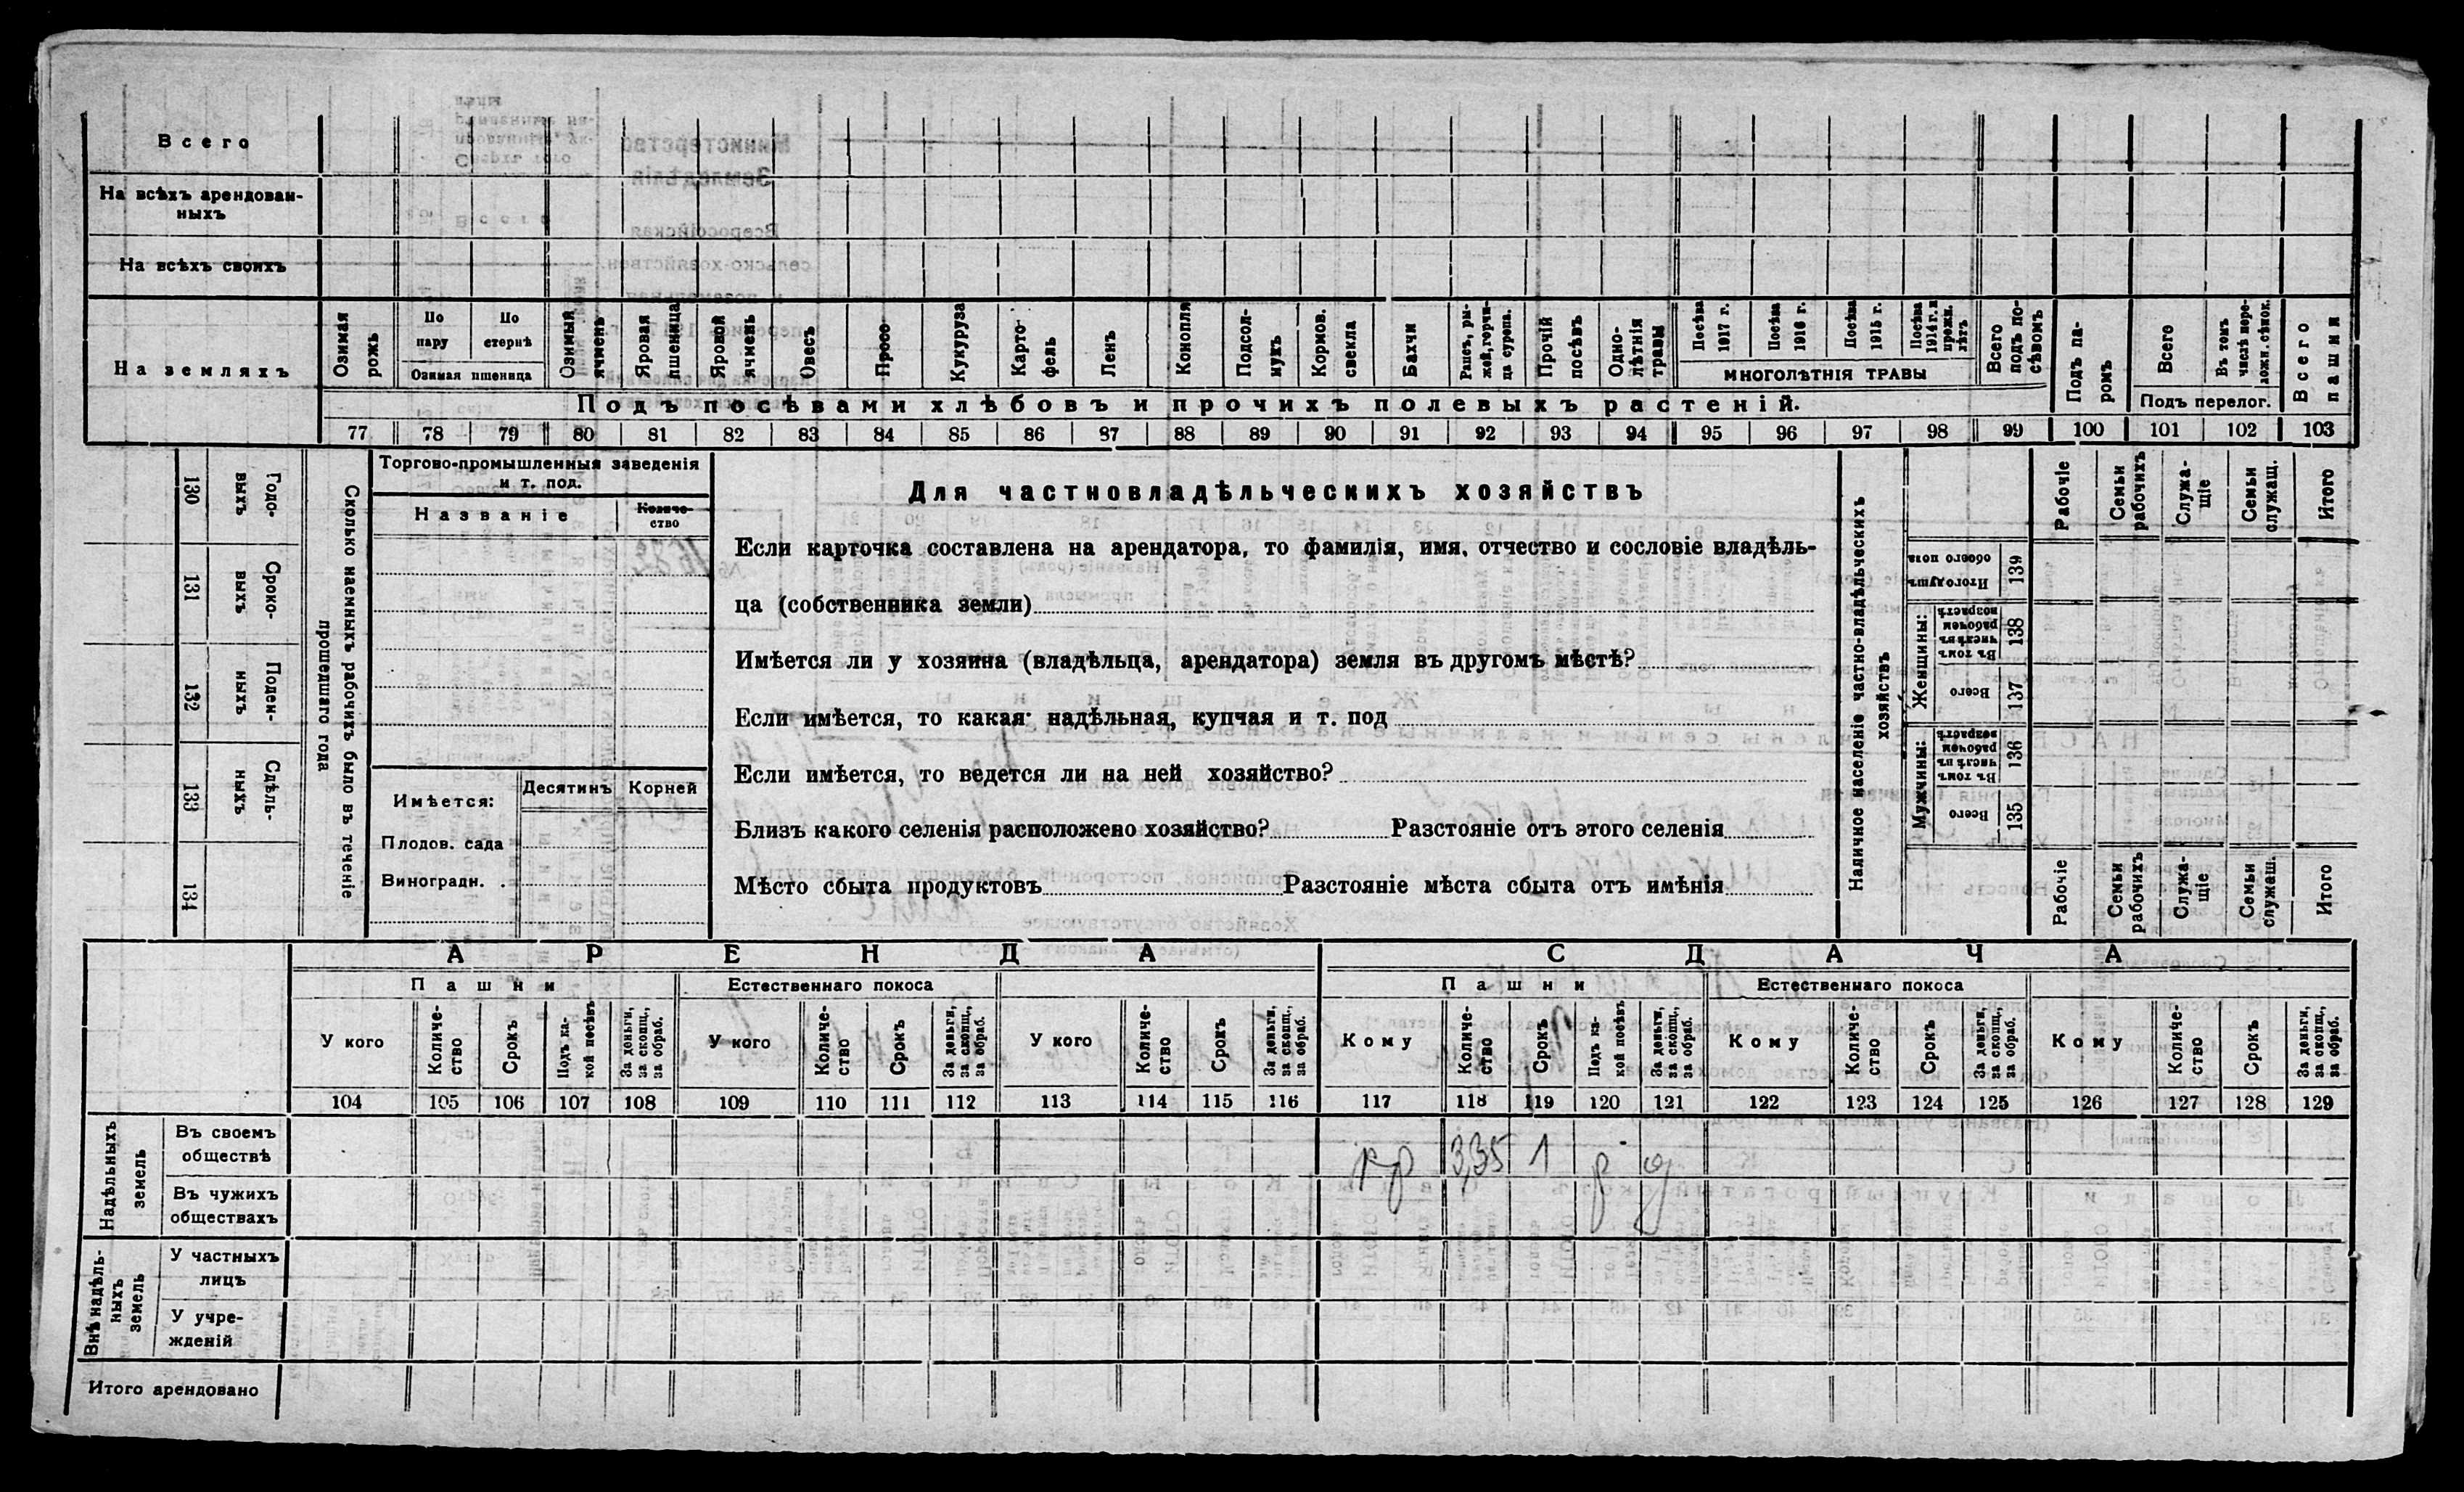 Всего
На всѣхъ арендован-
ныхъ
На всѣхъ своихъ
На земляхъ
Озимая рожь
По пару
По стернѣ
Озимая пшеница
Озимый ячмень
Яровая пшеница
Яровой ячмень
Овесъ
Просо
Кукуруза
Карто-
фель
Ленъ
Конопля
Подсол-
нухъ
Кормов.
свекла
Бахчи
Рапсъ, ры-
жей, горчи-
ца сурепа.
Прочій
посѣвъ
Одно-
лѣтнія
травы
Посѣва
1917 г.
Посѣва
1916 г.
Посѣва
1915 г.
Посѣва
1914 г. и
прежн.
лѣтъ
МНОГОЛѢТНІЯ ТРАВЫ
Всего
подъ по-
сѣвомъ
Подъ па-
ромъ
Всего
Въ томъ
числѣ пере-
ложн. сѣнок.
Подъ перелог.
Всего
пашни
Подъ посѣвами хлѣбовъ и прочихъ полевыхъ растеній.
77 78 79 80 81 82 83 84 85 86 87 88 89 90 91 92 93 94 95 96 97 98 99 100 101 102 103
130 Годо-
выхъ
131 Сроко-
выхъ
132 Поден-
ныхъ
133 Сдѣль-
ныхъ
134
Сколько наемныхъ рабочихъ было въ теченіе
прошедшаго года
Торгово-промышленныя заведенія
и т. под.
Названіе
Количе-
ство
Имѣется:
Десятинъ
Корней
Плодов. сада
Виноградн. .
Для частновладѣльческихъ хозяйствъ
Если карточка составлена на арендатора, то фамилія, имя, отчество и сословіе владѣль-
ца (собственника земли)
Имѣется ли у хозяина (владѣльца, арендатора) земля въ другомъ мѣстѣ?
Если имѣется, то какая: надѣльная, купчая и т. под
Если имѣется, то ведется ли на ней хозяйство?
Близъ какого селенія расположено хозяйство? Разстояніе отъ этого селенія
Мѣсто сбыта продуктовъ Разстояніе мѣста сбыта отъ имѣнія
Наличное населеніе частно-владѣльческихъ
хозяйствъ
Рабочіе
Семьи
рабочихъ
Служа-
щіе
Семьи
служащ.
Итого
Итого душъ
обоего пола
139
Женщины:
Въ томъ
числѣ въ
рабочем
возрастѣ
138
Всего
137
Мужчины:
Въ томъ
числѣ въ
рабочем
возрастѣ
136
Всего
135
Рабочіе
Семьи
рабочихъ
Служа-
щіе
Семьи
служеш.
Итого
АРЕНДА
СДАЧА
Пашни
Естественнаго покоса
Пашни
Естественнаго покоса
У кого
Количе-
ство
Срокъ
Подъ ка-
кой посѣвъ
За деньги,
за скопщ.,
за обраб.
У кого
Количе-
ство
Срокъ
За деньги,
за скопщ.,
за обраб.
У кого
Количе-
ство
Срокъ
За деньги,
за скопщ.,
за обраб.
Кому
Количе-
ство
Срокъ
Подъ ка-
кой посѣвъ
За деньги,
за скопщ.,
за обраб.
Кому
Количе-
ство
Срокъ
За деньги,
за скопщ.,
за обраб.
Кому
Количе-
ство
Срокъ
За деньги,
за скопщ.,
за обраб.
104 105 106 107 108 109 110 111 112 113 114 115 116 117 118 119 120 121 122 123 124 125 126 127 128 129
Надѣльныхъ
земель
Въ своемъ
обществѣ
кр 3,35 1 р д
Въ чужихъ
обществахъ
Внѣ надѣль-
ныхъ
земель
У частныхъ
лицъ
У учре-
жденій
Итого арендовано